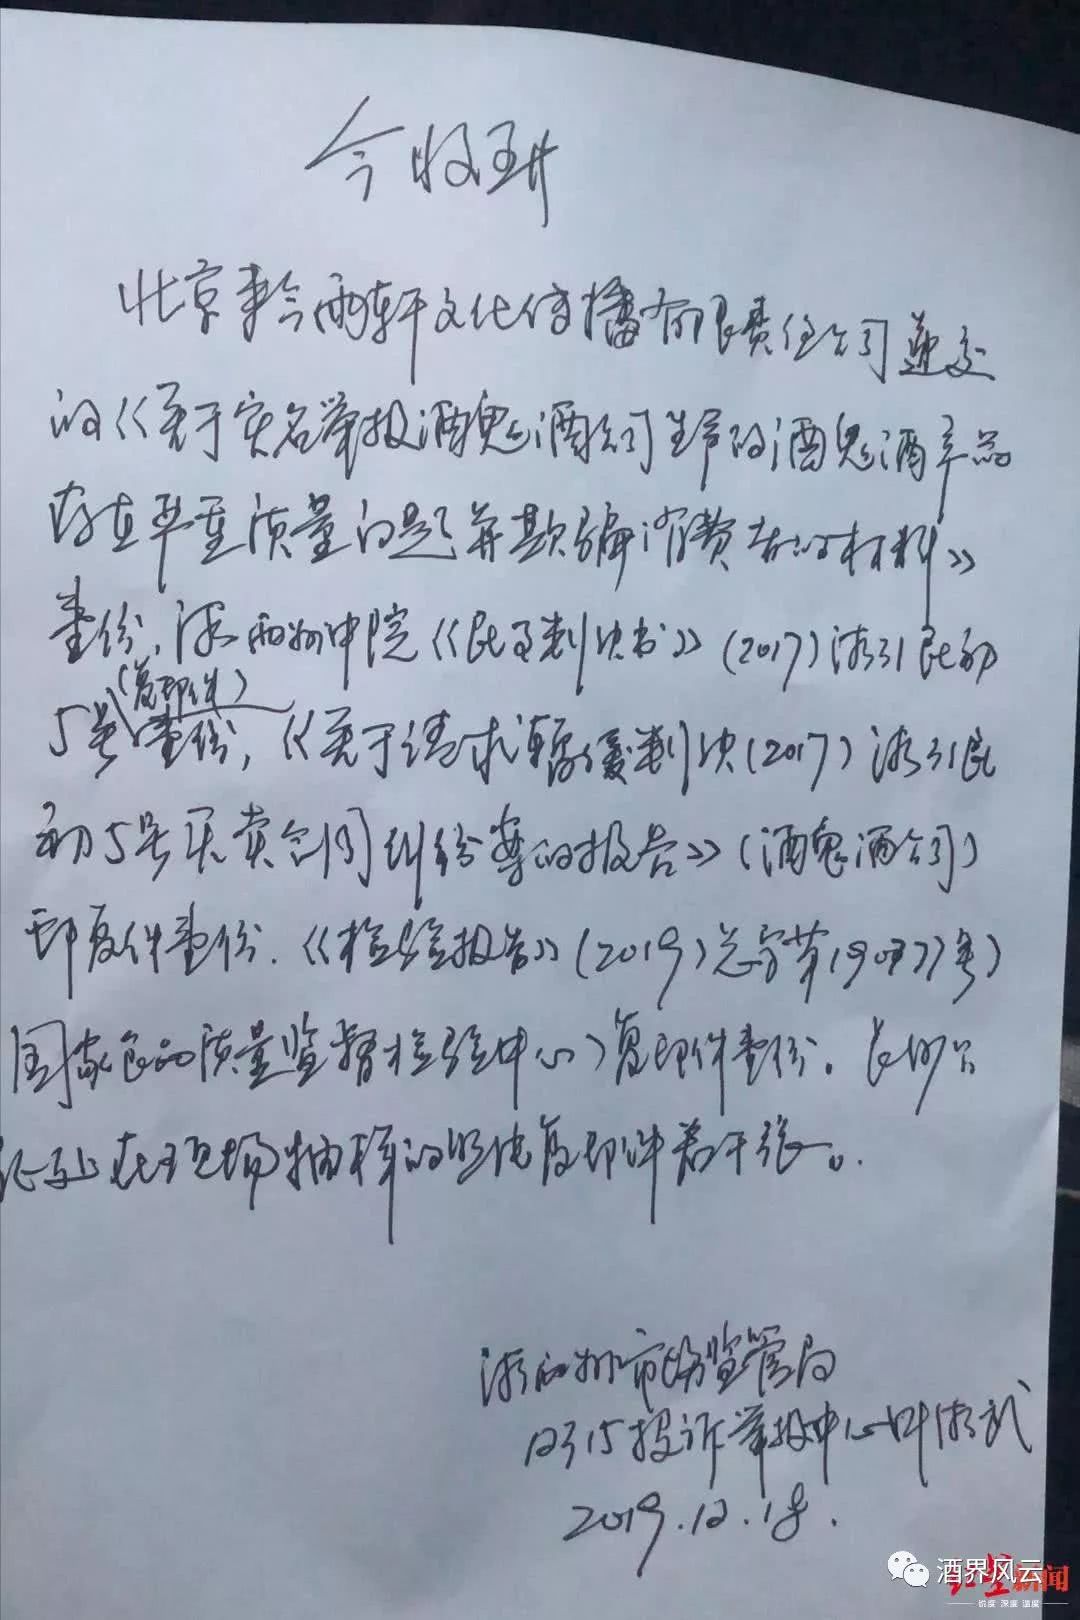 今收到
北京来今雨轩文化传播有限责任公司递交
的《关于实名举报酒鬼酒公司生产的酒鬼酒产品
存在严重质量问题并欺骗消费者的材料》
壹份，湘西州中院《民事判决书》(2017)湘31民初
(复印件)
5号壹份，《关于请求暂缓判决(2017)湘31民
初5号买卖合同纠纷案的报告》(酒鬼酒公司)
印复件壹份.《检验报告》(2019)总字第
国家食品质量监督检验中心)复印件壹份。长沙公
证处在现场抽样的照片复印件若干张。
湘西州市场监管局
12315投诉举报中心
2019.12.18.
酒界风云
红星新闻
锐度 深度 温度